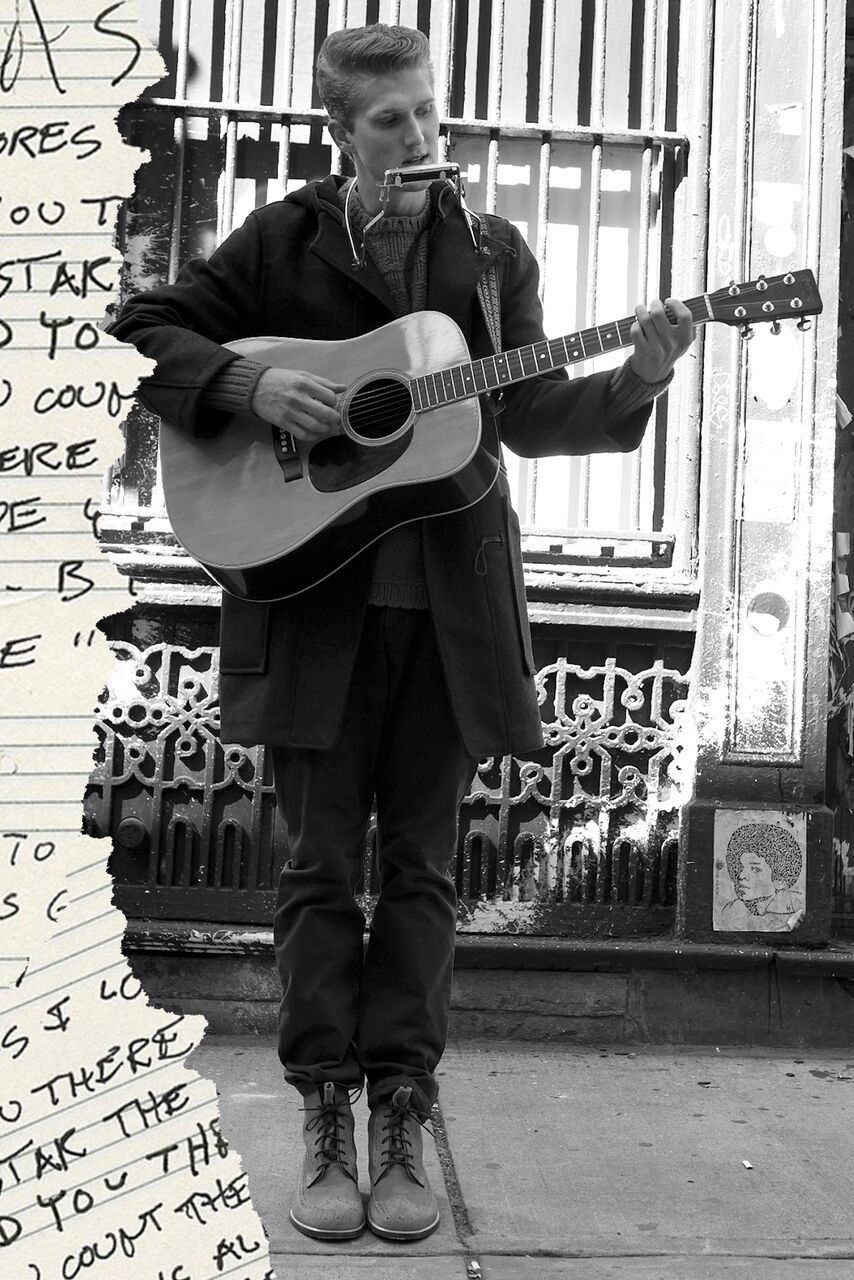 AS
ORES
YOU T
STAR
D TO
U COUN
ERE
DE Y
- B
E "
TO
S
S I LO
U THERE
STAR THE
D YOU THE
U COUNT THE
AL